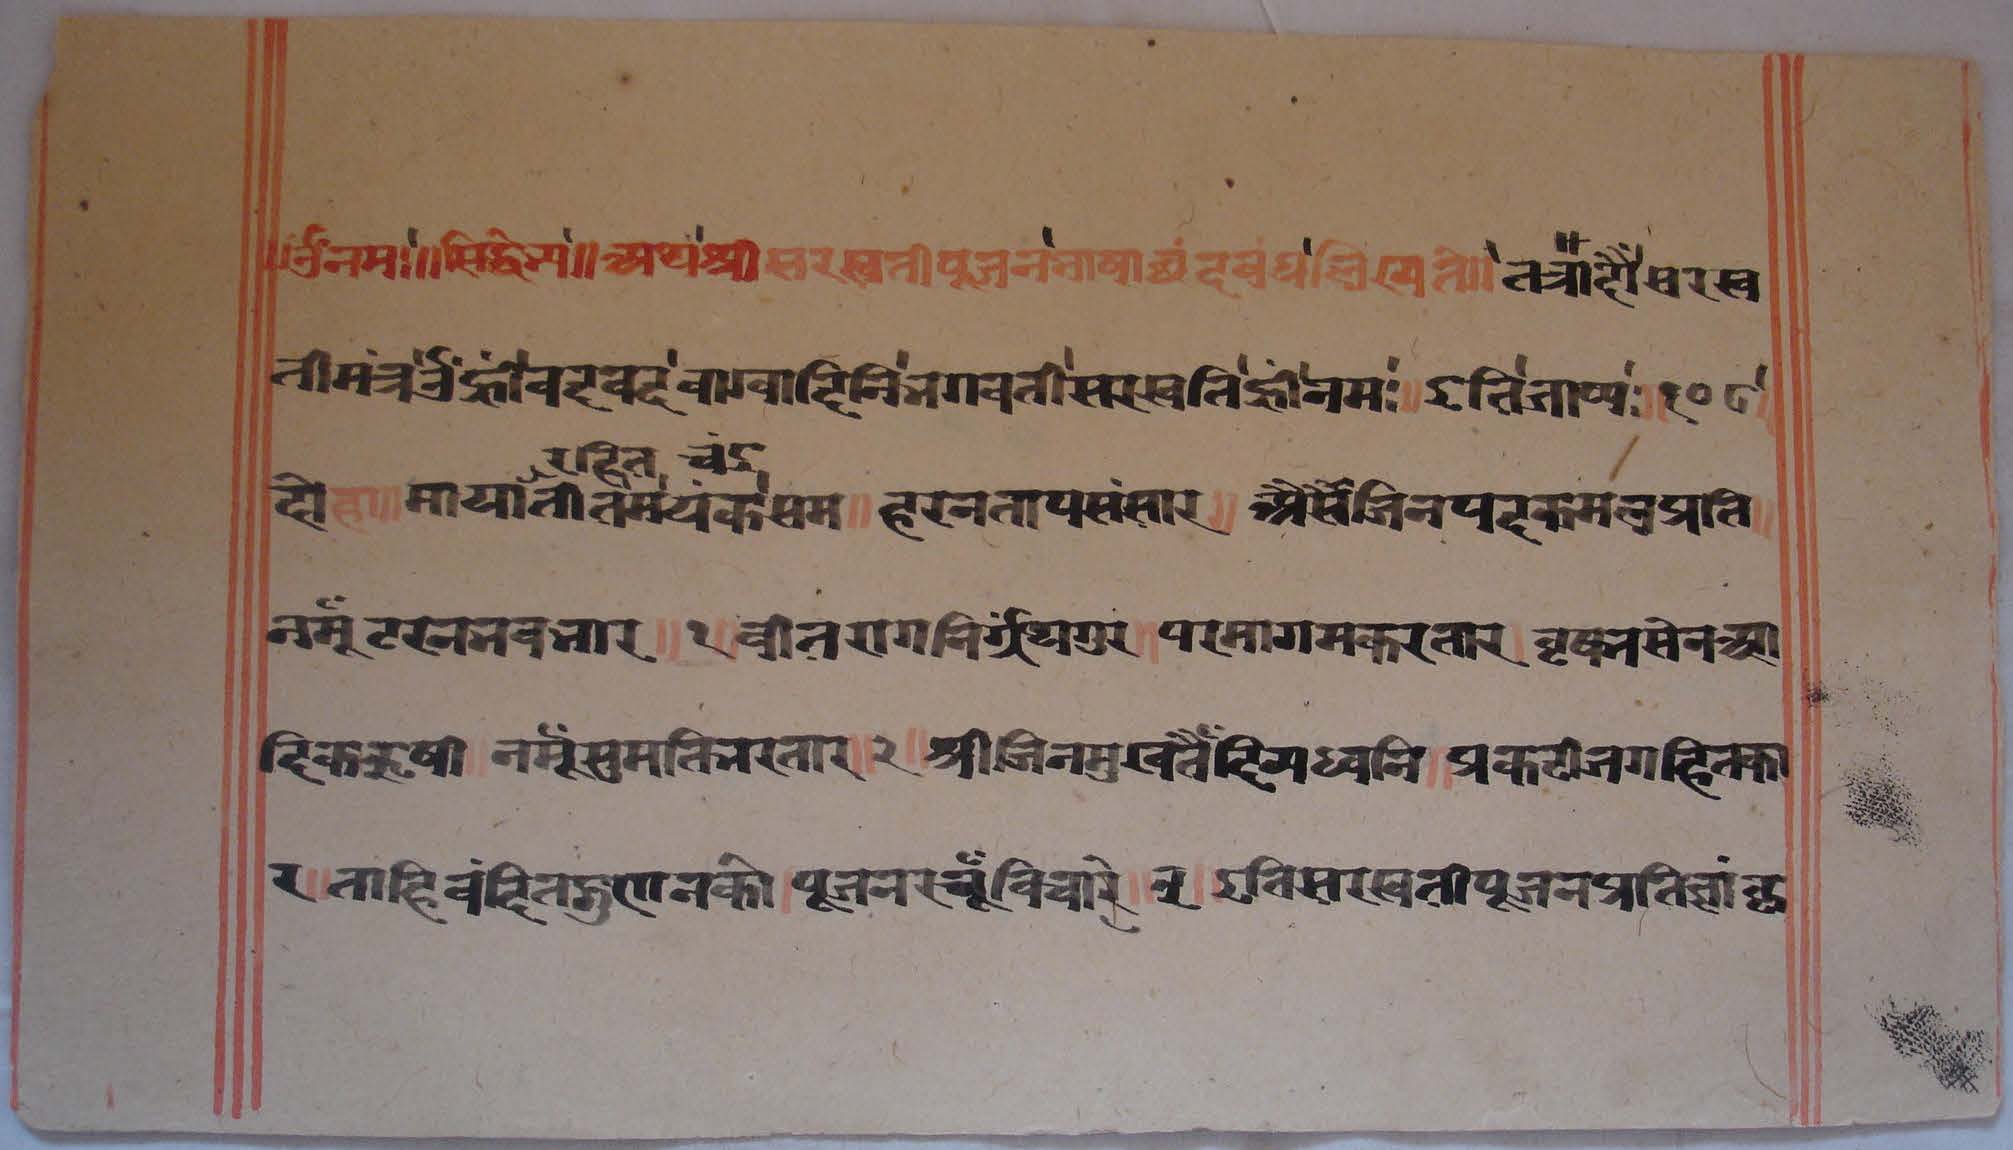 ॥ॐनमः॥सिद्धेभ्यः॥अथश्रीसरस्वतीपूजनभाषाछंदबंधलिख्यते॥तत्रादौसरस्व
तीमंत्रॐह्रींवदवदवाग्वादिनिभगवतीसरस्वतिह्रींनमः॥इतिजाप्यः॥१०८॥
रहित चंद्र
दोहा॥मायातीतमयंकसम॥हरनतापसंसार॥अैसैंजिनपदकमलप्रति॥
नमूँटरनभवभार॥१॥वीतरागनिर्ग्रंथगुर॥परमागमकरतार।वृषभसेनआ
दिकऋषी॥नमूँसुमतिभरतार॥२॥श्रीजिनमुखतैंदिव्यध्वनि॥प्रकटीजगहितका
र॥ताहिवंदितगुणनको।पूजनरचूँविचार॥३॥इतिसरस्वतीपूजनप्रति